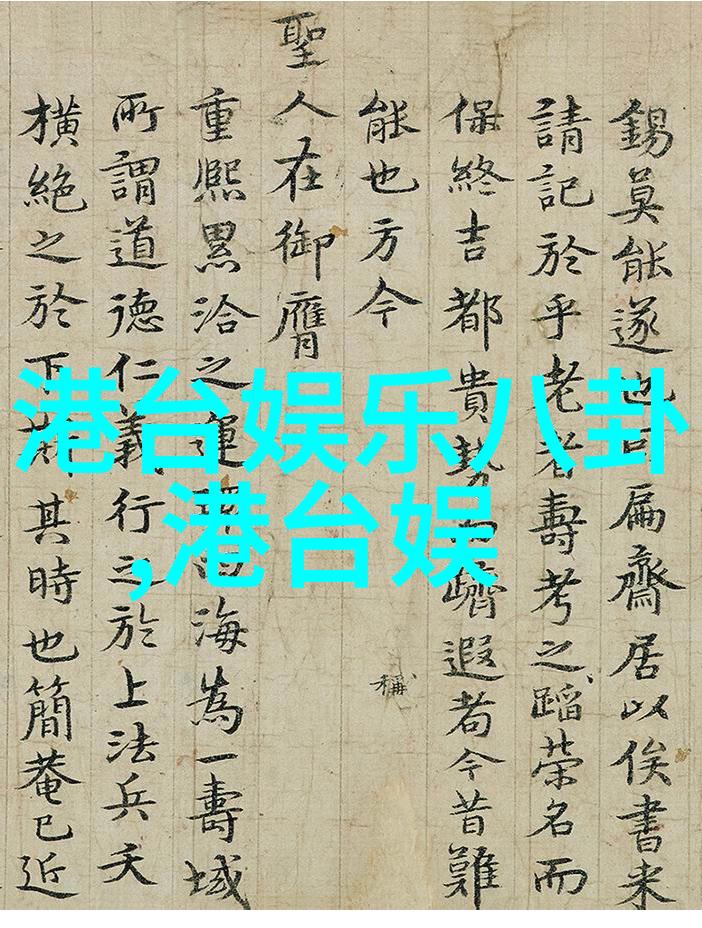 港台娱乐八卦
,港台娱
錫莫能遂也可扁齋居以俟書来
請記於乎老者壽考之蹈榮名而
保終吉都貴勢而躋遐耇今昔難
能也方今
稱
聖人在御膺
重熙累洽之運海為一壽域
所謂道德仁義行之於上法兵夭
横絶之於下其時也簡菴已近